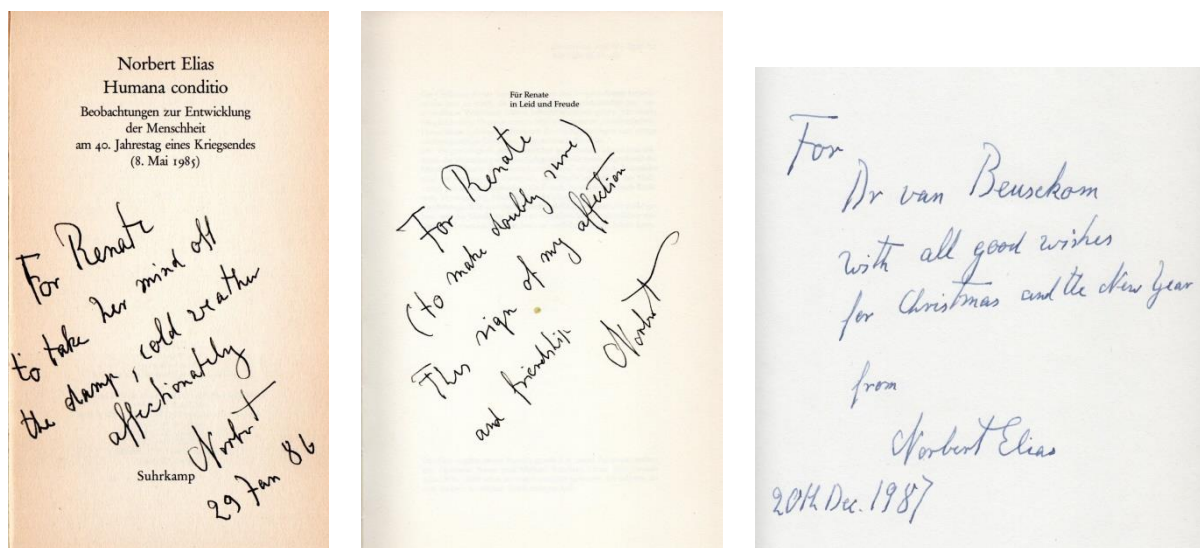 Norbert Elias
Humana conditio
Beobachtungen zur Entwicklung
der Menschheit
am 40. Jahrestag eines Kriegsendes
(8. Mai 1985)
For Renate
to take her mind off
the damp, cold weather
affectionately
Norbert
Suhrkamp
29 Jan 86
Für Renate
in Leid und Freude
For Renate
(to make doubly sure)
This sign of my affection
and friendship
Norbert
For
Dr van Beusekom
with all good wishes
for Christmas and the New Year
from
Norbert Elias
20th Dec. 1987